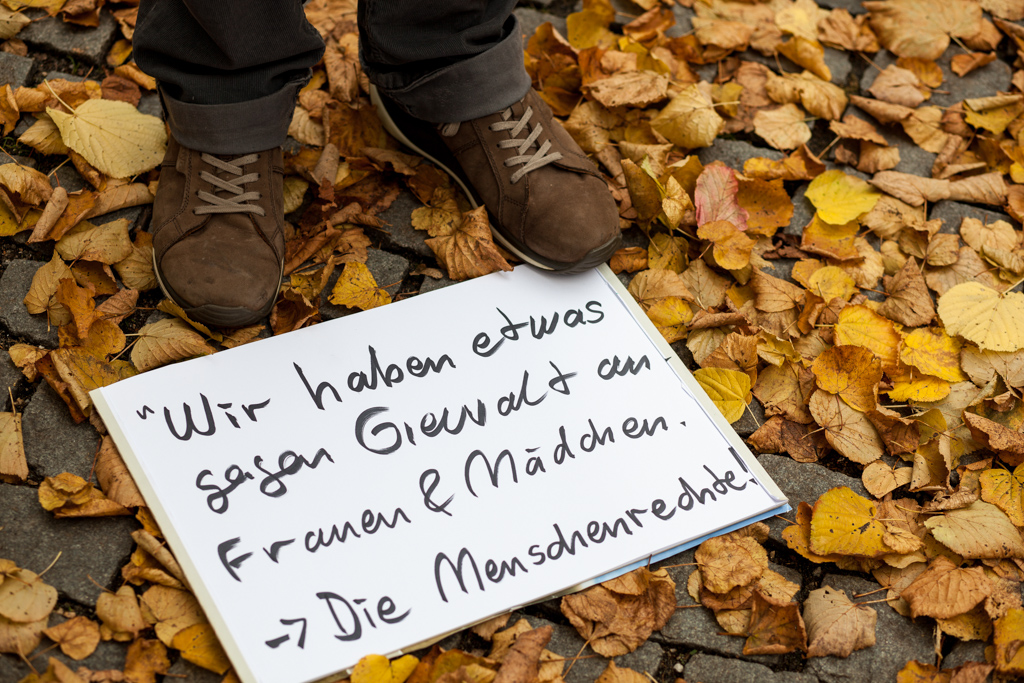 "Wir haben etwas
gegen Gewalt an
Frauen & Mädchen.
→ Die Menschenrechte!